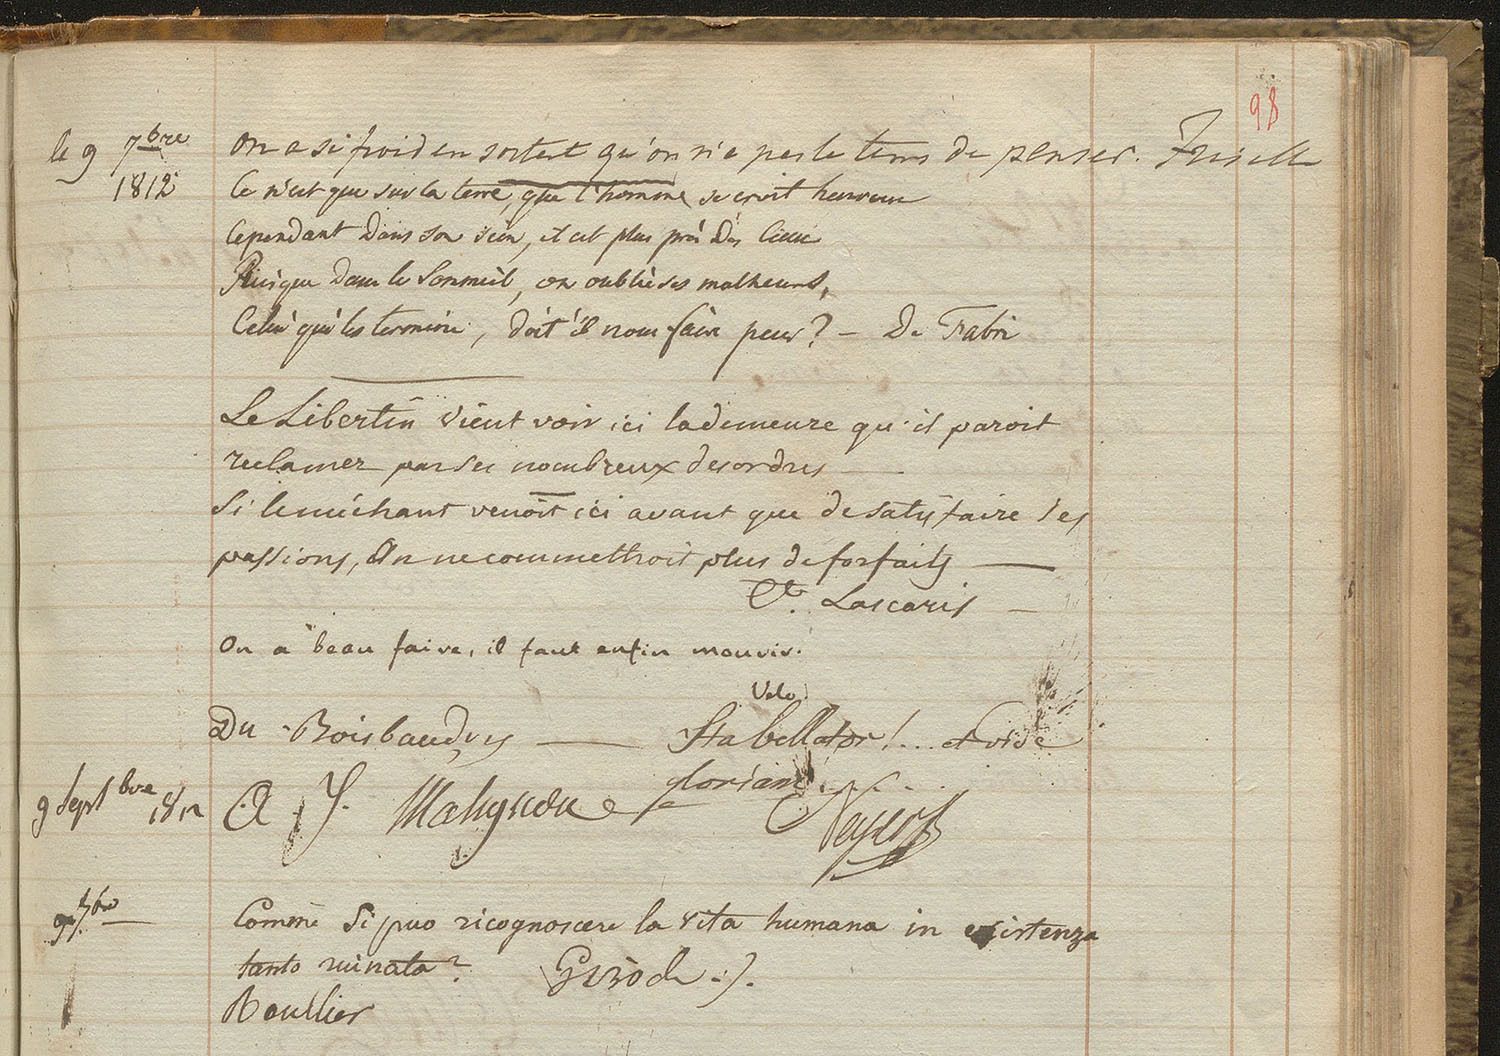 98
le 9 7bre 1812
On a si froid en sortant qu'on n'a pas le tems de penser.
Ce n'est que sur la terre, que l'homme se croit heureux
Cependant dans son sein, il est plus près des Cieux
Puisque dans le Sommeil, on oublie ses malheurs,
Celui qui les termine, doit il nous faire peur? – De Fabri
Le Libertin vient voir ici la demeure qu'il paroit
reclamer par ses nombreux desordres —
Si le méchant venoit ici avant que de satisfaire ses
passions, On ne commettroit plus de forfaits —
Lascaris —
On a beau faire, il faut enfin mourir.
Du Boisbaudry —
Stabellator!... et vide
9 Septbre 1812
gloriam
9 7bre
Comme si puo ricognoscere la vita humana in existenza
tanto ruinata?
Roullier